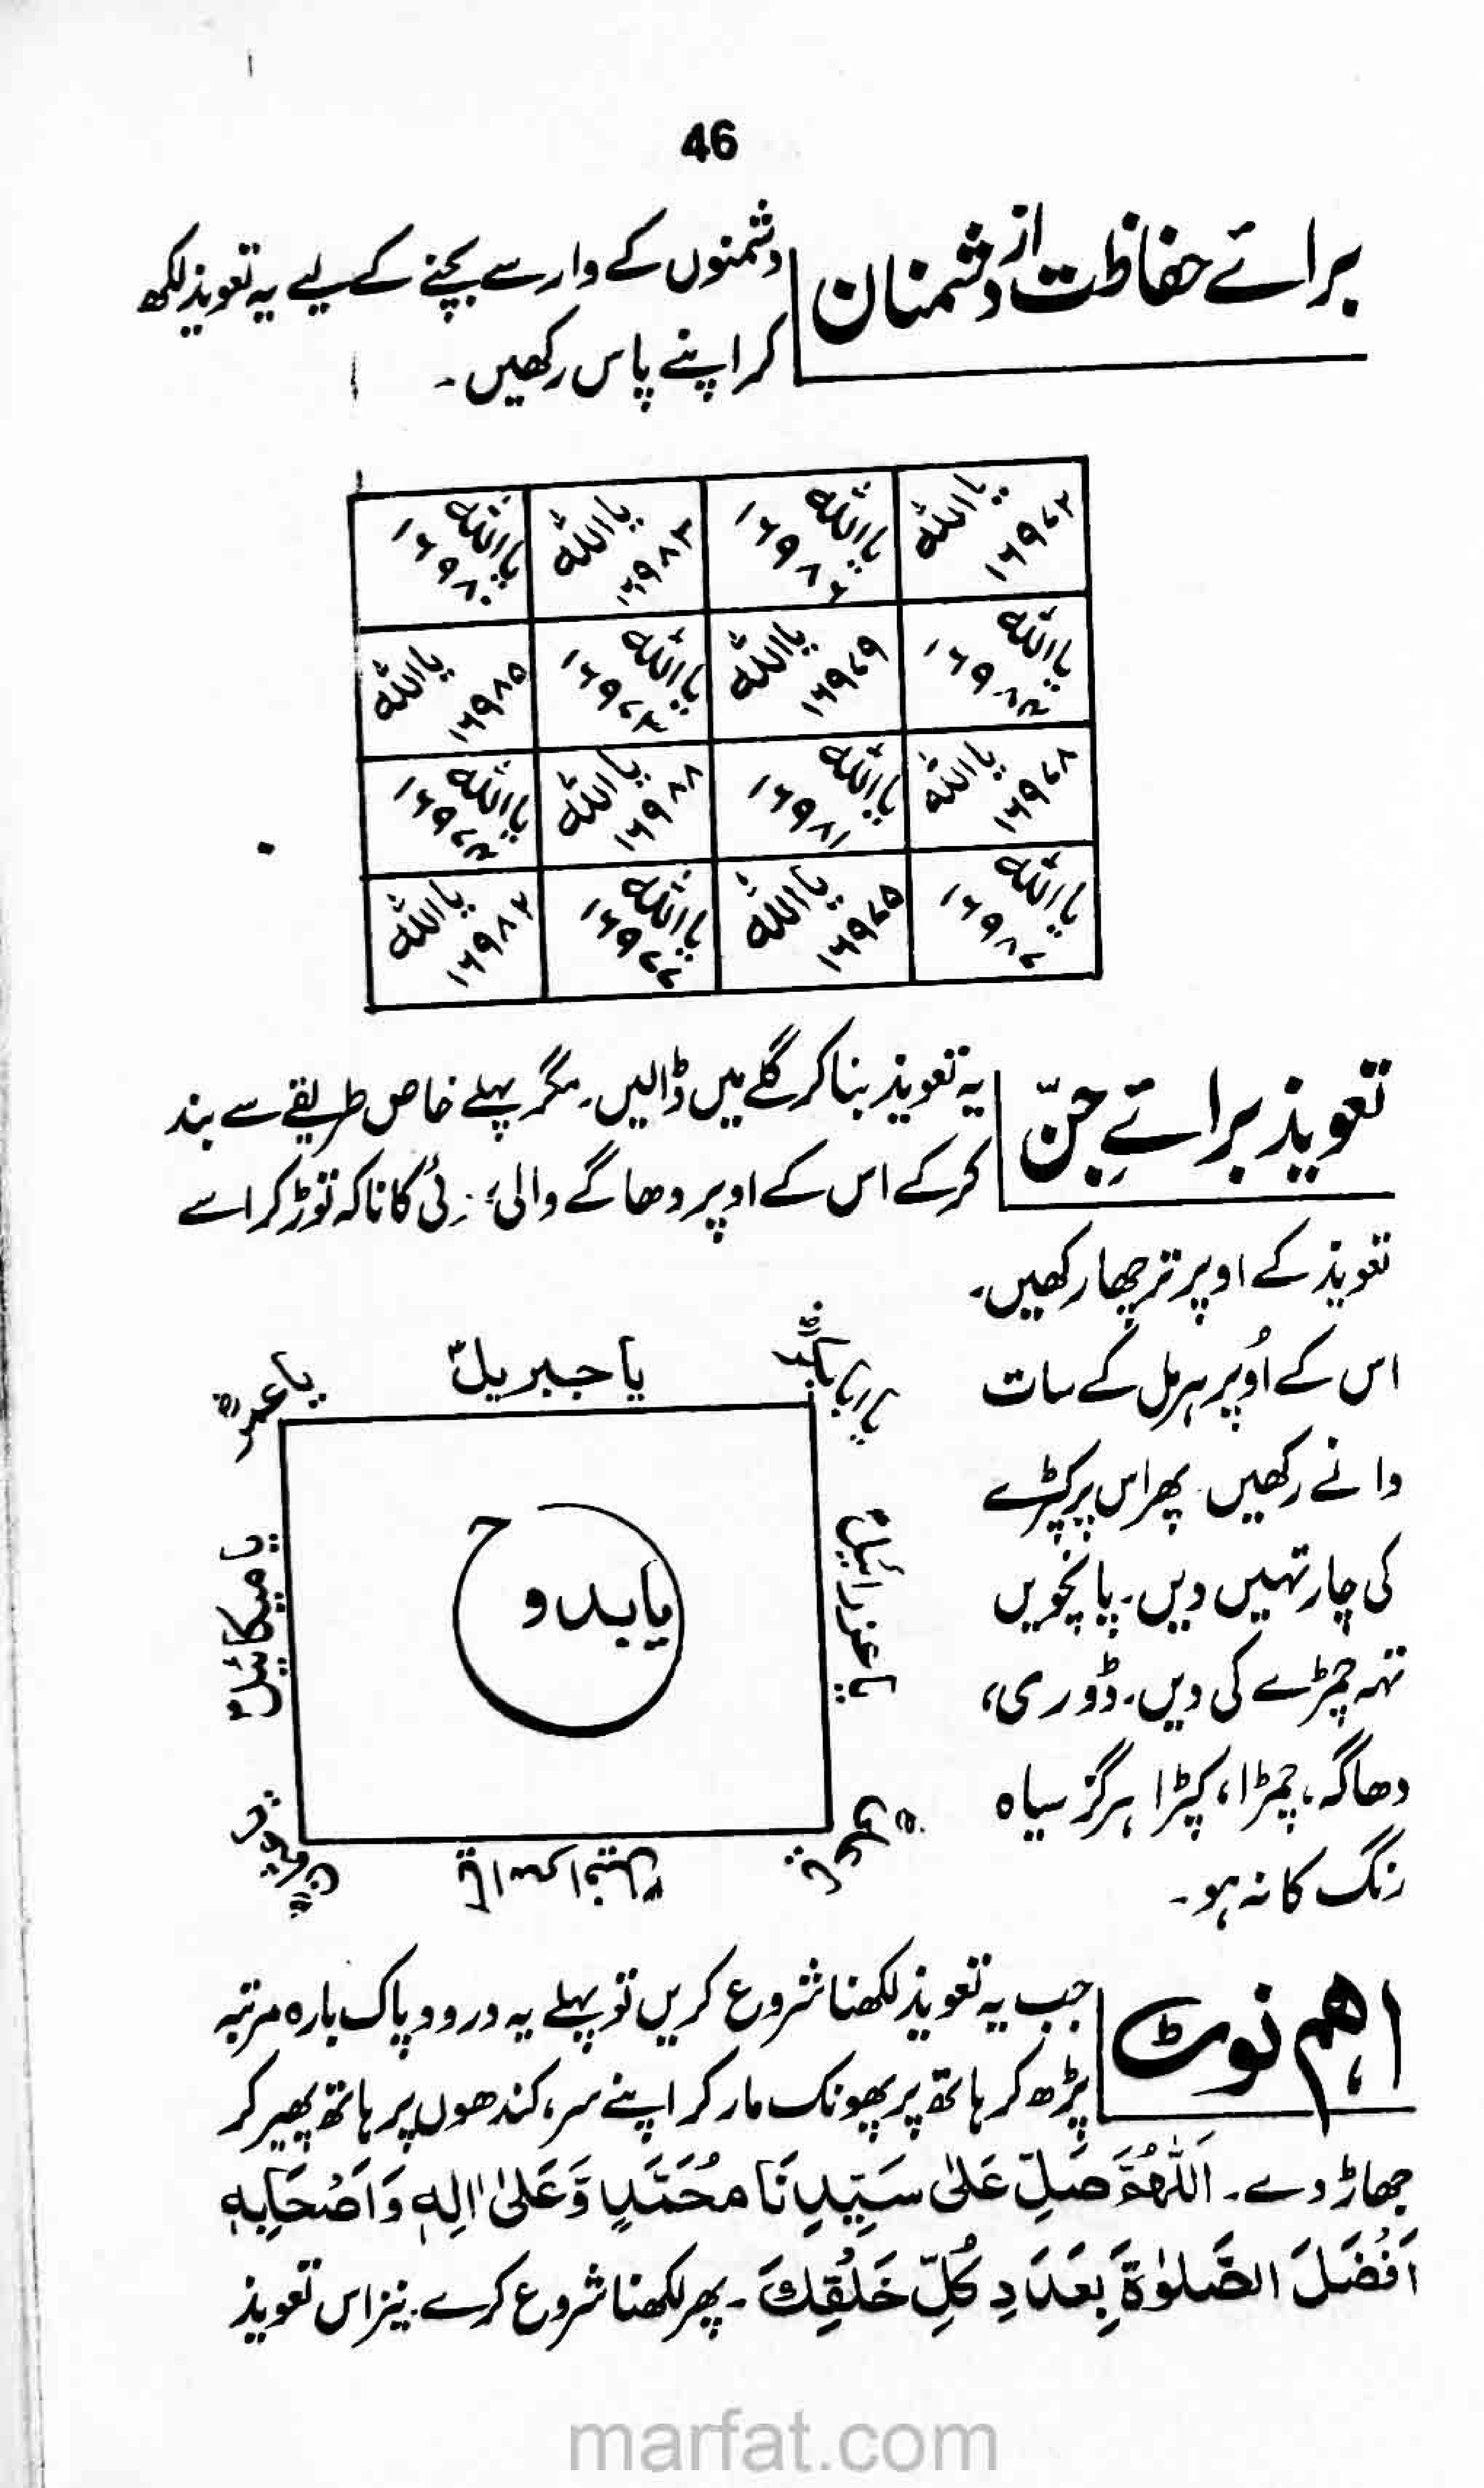 46
برائے حفاظت از دشمنان
دشمنوں کے وار سے بچنے کے لیے یہ تعویذ لکھ
کر اپنے پاس رکھیں۔
یا اللہ ۱۶۹۷۲ یا اللہ ۱۶۹۸۶ یا اللہ ۱۶۹۸۳ یا اللہ ۱۶۹۸۰
یا اللہ ۱۶۹۸۴ یا اللہ ۱۶۹۷۹ یا اللہ ۱۶۹۷۳ یا اللہ ۱۶۹۸۵
یا اللہ ۱۶۹۷۸ یا اللہ ۱۶۹۸۱ یا اللہ ۱۶۹۸۸ یا اللہ ۱۶۹۷۴
یا اللہ ۱۶۹۸۷ یا اللہ ۱۶۹۷۵ یا اللہ ۱۶۹۷۷ یا اللہ ۱۶۹۸۲
تعویذ برائے جنّ
یہ تعویذ بنا کر گلے میں ڈالیں۔ مگر پہلے خاص طریقے سے بند
کر کے اس کے اوپر دھاگے والی کا ناکہ توڑ کر اسے
تعویذ کے اوپر ترچھا رکھیں۔
اس کے اُوپر ہرمل کے سات
دانے رکھیں۔ پھر اس پر کپڑے
کی چار تہیں دیں۔ پانچویں
تہہ چمڑے کی دیں۔ ڈوری،
دھاگہ، چمڑا، کپڑا ہرگز سیاہ
رنگ کا نہ ہو۔
یا جبریلؑ
یا عمرؓ
یا عزرائیلؑ
یا میکائیلؑ
یا بدوح
یا اسرافیلؑ
اہم نوٹ
جب یہ تعویذ لکھنا شروع کریں تو پہلے یہ درود پاک بارہ مرتبہ
پڑھ کر ہاتھ پر پھونک مار کر اپنے سر، کندھوں پر ہاتھ پھیر کر
جھاڑ دے۔ اَللّٰهُمَّ صَلِّ عَلٰى سَيِّدِنَا مُحَمَّدٍ وَّعَلٰى اٰلِهٖ وَاَصْحَابِهٖ
اَفْضَلَ الصَّلٰوةَ بِعَدَدِ كُلِّ خَلْقِكَ۔ پھر لکھنا شروع کرے۔ نیز اس تعویذ
marfat.com